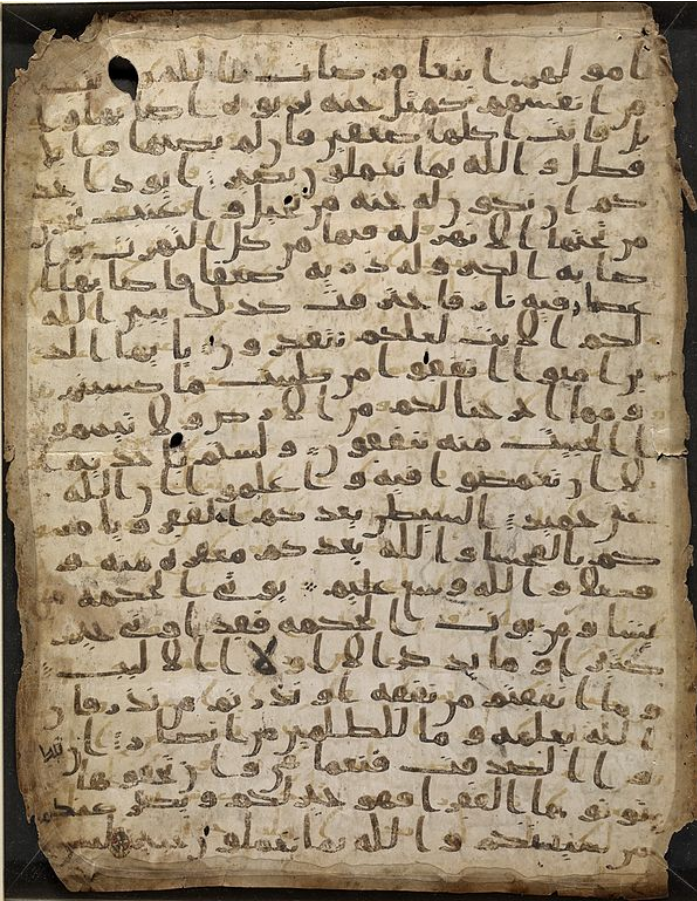 امولهم ابتغا مرضات الله وتثبيتا
من انفسهم كمثل جنة بربوة اصابها وا
بل فاتت اكلها ضعفين فان لم يصبها وابل
فطل والله بما تعملون بصير ايود احد
كم ان تكون له جنة من نخيل واعنب تجري
من تحتها الانهر له فيها من كل الثمرت وا
صابه الكبر وله ذرية ضعفا فاصابها ا
عصار فيه نار فاحترقت كذلك يبين الله
لكم الايت لعلكم تتفكرون يايها الذ
ين امنوا انفقوا من طيبت ما كسبتم
ومما اخرجنا لكم من الارض ولا تيممو
ا الخبيث منه تنفقون ولستم باخذيه ا
لا ان تغمضوا فيه واعلموا ان الله
غني حميد الشيطن يعدكم الفقر ويامر
كم بالفحشا والله يعدكم مغفرة منه و
فضلا والله وسع عليم يوتي الحكمة من
يشا ومن يوت الحكمة فقد اوتي خير
كثيرا وما يذكر الا اولوا الالبب
وما انفقتم من نفقة او نذرتم من نذر فان
الله يعلمه وما للظلمين من انصار ان تبد
وا الصدقت فنعما هي وان تخفوها
وتوتوها الفقرا فهو خير لكم ويكفر عنكم
من سيتكم والله بما تعملون خبير ليس